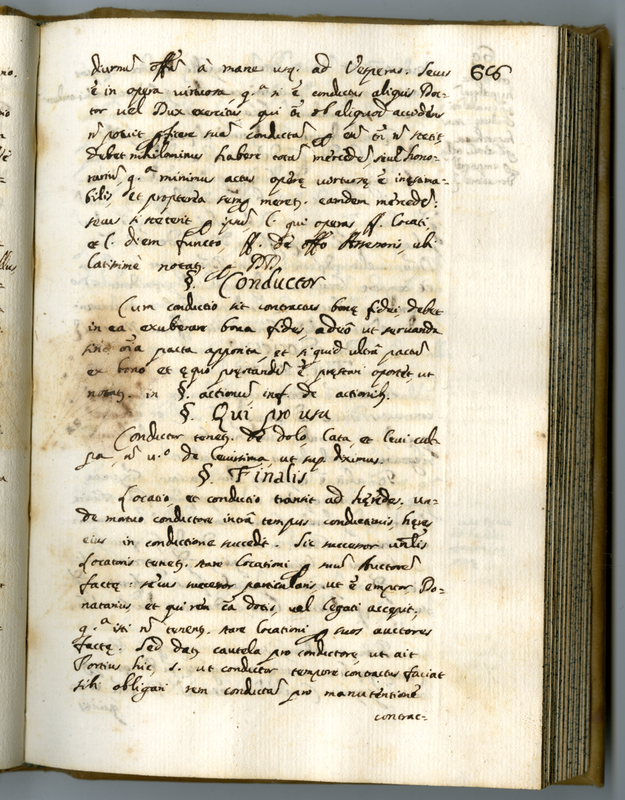 diurnū offm̄ à mane usq. ad Vesperas. Secus
ē in opera virtuosa q.ª si ē conductus aliquis Doc=
tor vel Dux exercitus qui oñ ob aliquod accidens
ñ potuit pficere suā conductā p eū oñ ñ stetit,
debet nihilominus habere totā mercedē sive hono=
rariū, q.ª minimus actus operę virtuosę ē inęstima=
bilis et propterea semp meret. eandem mercedē:
secus si steterit p ipsū l. qui operas ff. locati,
et l. diem functo ff. De offo Assessoris, ubi
latissimè notat. DD.
§. Conductor
Cum conductio sit contractus bonę fidei, debet
in ea exuberare bona fides, adeò ut servanda
sint oīa pacta apposita, et siquid ultrà pactū
ex bono et ęquo pręstandū ē pręstari oportet, ut
notat. in §. actionū inf. de actionib.
§. Qui pro usu
Conductor tenet. de dolo, lata et levi cul=
pa, ñ v.º de levissima, ut sup. diximus.
§. Finalis
Locatio et conductio transit ad hęredes, un=
de mortuo conductore intrà tempus conductionis hęres
eius in conductione succedit. Sic successor uñlis
Locatoris tenet. stare locationi p suū Auctorē
factę: secus successor particularis ut ē emptor Do=
natarius, et qui rem cā dotis, vel legati accepit,
q.ª isti ñ tenent. stare locationi p suos auctores
factę. Sed dat. cautela pro conductore, ut ait
Portius hic s. ut conductor tempore contractus faciat
sibi obligari rem conductā pro manutentione
contrac=
666